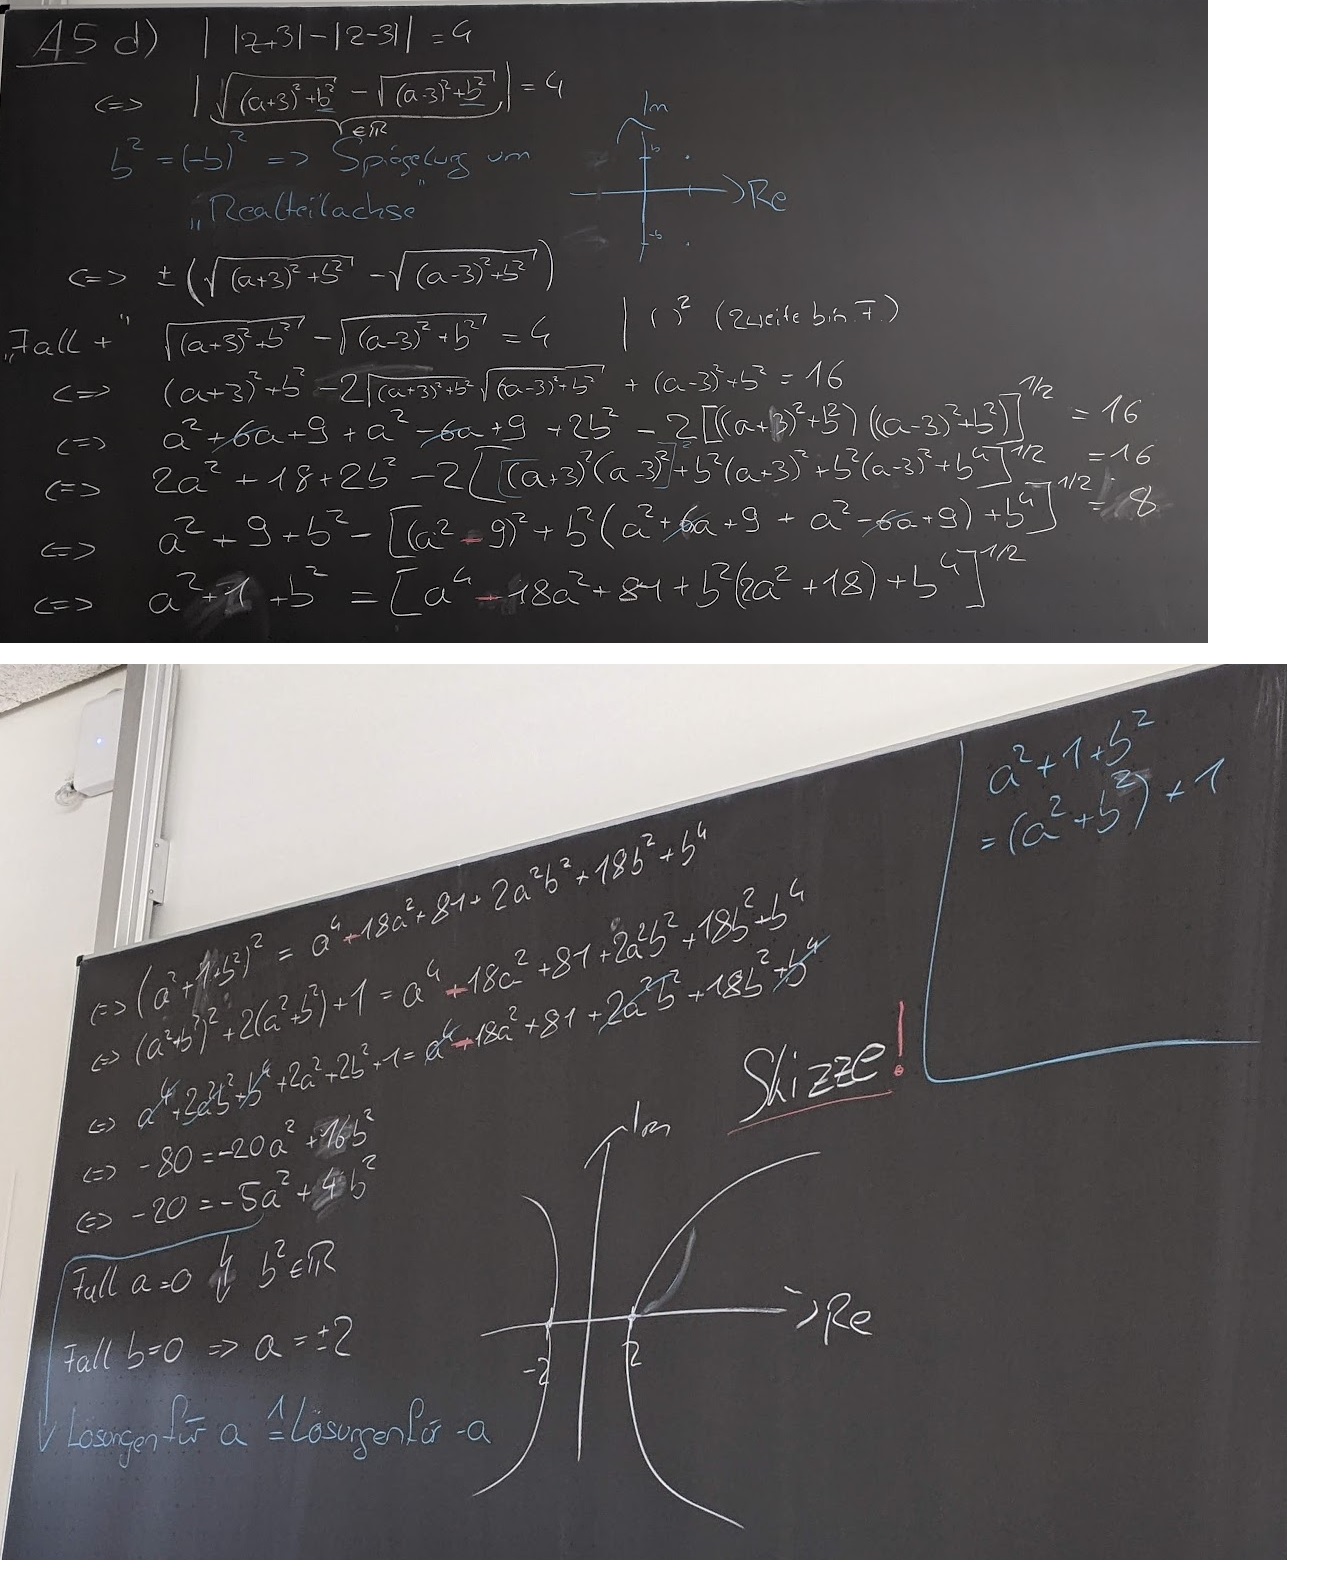 A5 d) | |z+3| - |z-3| | = 4
<=> | √((a+3)²+b²) - √((a-3)²+b²) | = 4
∈ℝ
b² = (-b)² => Spiegelung um
„Realteilachse"
Im
b
Re
-b
<=> ± (√((a+3)²+b²) - √((a-3)²+b²))
„Fall +" √((a+3)²+b²) - √((a-3)²+b²) = 4 | ( )² (zweite bin. F.)
<=> (a+3)²+b² - 2√((a+3)²+b²) √((a-3)²+b²) + (a-3)²+b² = 16
<=> a² + 6a + 9 + a² - 6a + 9 + 2b² - 2[((a+3)²+b²) ((a-3)²+b²)]^1/2 = 16
<=> 2a² + 18 + 2b² - 2[[(a+3)²(a-3)²] + b²(a+3)² + b²(a-3)² + b⁴]^1/2 = 16
<=> a² + 9 + b² - [(a² - 9)² + b²(a² + 6a + 9 + a² - 6a + 9) + b⁴]^1/2 = 8
<=> a² + 1 + b² = [a⁴ - 18a² + 81 + b²(2a² + 18) + b⁴]^1/2
a² + 1 + b²
= (a² + b²) + 1
<=> (a² + 1 + b²)² = a⁴ - 18a² + 81 + 2a²b² + 18b² + b⁴
<=> (a²+b²)² + 2(a²+b²) + 1 = a⁴ - 18a² + 81 + 2a²b² + 18b² + b⁴
<=> a⁴ + 2a²b² + b⁴ + 2a² + 2b² + 1 = a⁴ - 18a² + 81 + 2a²b² + 18b² + b⁴
<=> -80 = -20a² + 16b²
<=> -20 = -5a² + 4b²
Fall a=0 ↯ b² ∈ ℝ
Fall b=0 => a = ±2
Lösungen für a ≙ Lösungen für -a
Skizze!
Im
Re
-2
2